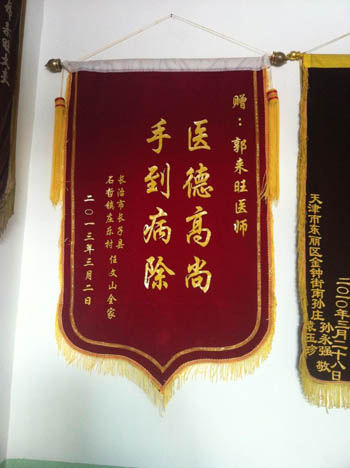 赠：郭来旺医师
医德高尚
手到病除
长治市长子县
石哲镇庄乐村 任文山全家
二〇一三年三月二日
天津市东丽区金钟街南孙庄
孙永强
袁玉珍
敬
二〇〇年三月二十八日